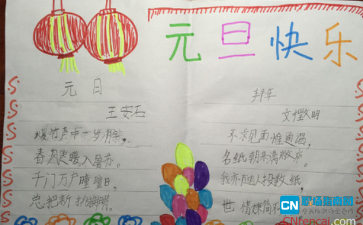 元旦快乐
元日
王安石
爆竹声中一岁除,
春风送暖入屠苏。
千门万户曈曈日,
总把新桃换旧符。
拜年
文徵明
不求见面惟通谒,
名纸朝来满敝庐。
我亦随人投数纸,
世情嫌简
CN
CNfeacai.com